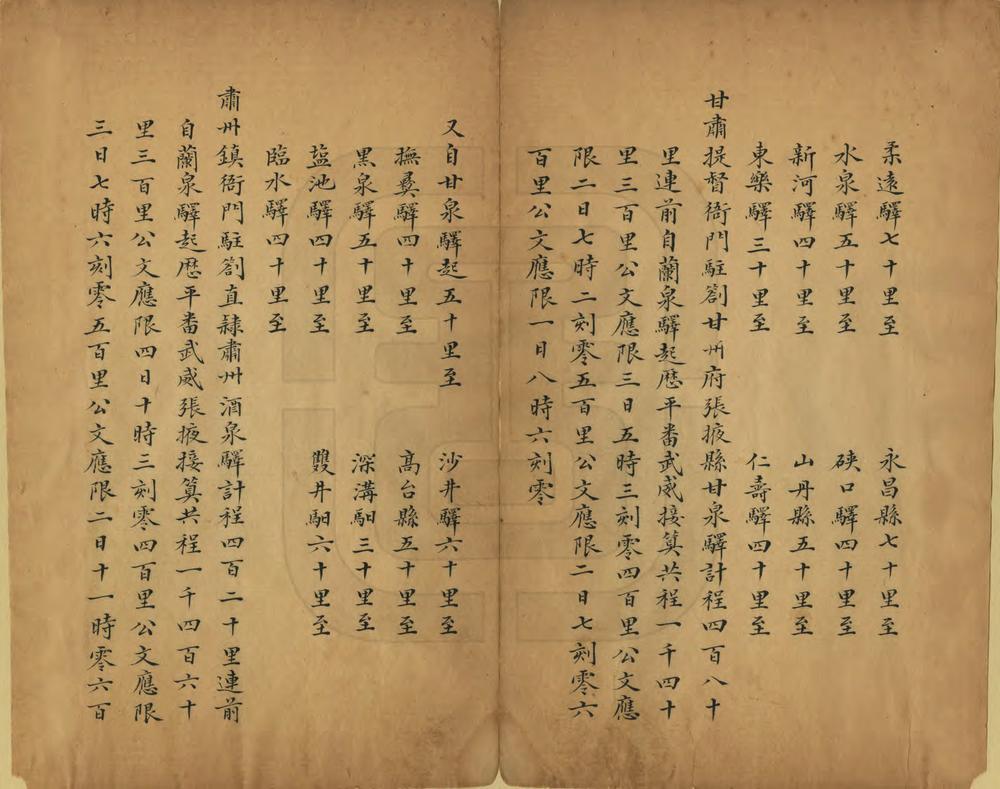 柔遠驛七十里至　永昌縣七十里至
水泉驛五十里至　硤口驛四十里至
新河驛四十里至　山丹縣五十里至
東樂驛三十里至　仁壽驛四十里至
甘肅提督衙門駐劄甘州府張掖縣甘泉驛計程四百八十
里連前自蘭泉驛起歷平番武威接算共程一千四十
里三百里公文應限三日五時三刻零四百里公文應
限二日七時二刻零五百里公文應限二日七刻零六
百里公文應限一日八時六刻零
又自甘泉驛起五十里至　沙井驛六十里至
撫彝驛四十里至　高台縣五十里至
黑泉驛五十里至　深溝馹三十里至
盐池驛四十里至　雙井馹六十里至
臨水驛四十里至
肅州鎮衙門駐劄直隸肅州酒泉驛計程四百二十里連前
自蘭泉驛起歷平番武威張掖接算共程一千四百六十
里三百里公文應限四日十時三刻零四百里公文應限
三日七時六刻零五百里公文應限二日十一時零六百